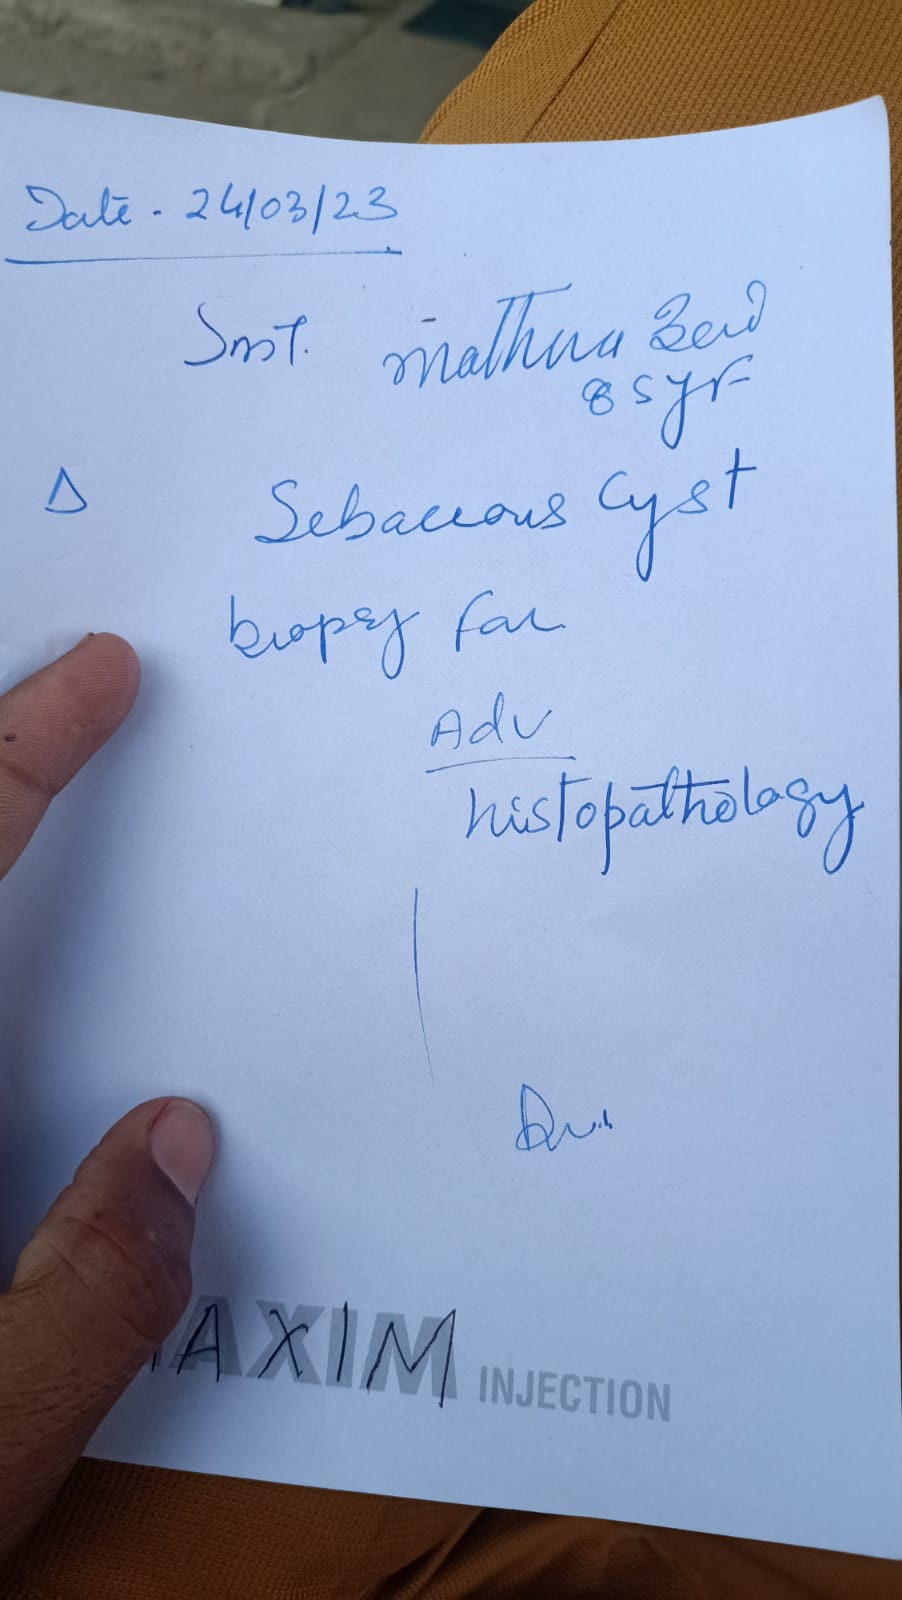 Date - 24/03/23
Smt. Mathura Devi
85yr
Δ Sebaceous Cyst
biopsy for
Adv
histopathology
AXIM INJECTION